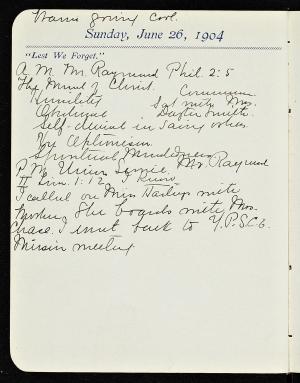 Warm going cool.
Sunday, June 26, 1904
"Lest We Forget."
A.M. Mr. Raymund Phil. 2:5
The Mind of Christ. Communion
Humility Sat with Mrs.
Obedience Dexter Smith.
Self-denial in saving others
Optimism
Spiritual Mindedness
P.M. Union Service. Mr. Raymund
II Tim. 1:12 I know
I called on Miss Hartings with
She boards with Mrs.
Chase. I went back to Y.P.S.C.E.
Mission meeting